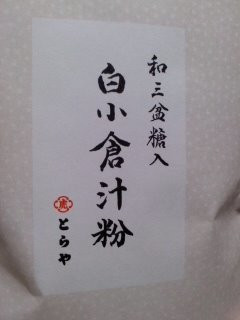 和三盆糖入
白小倉汁粉
虎
とらや